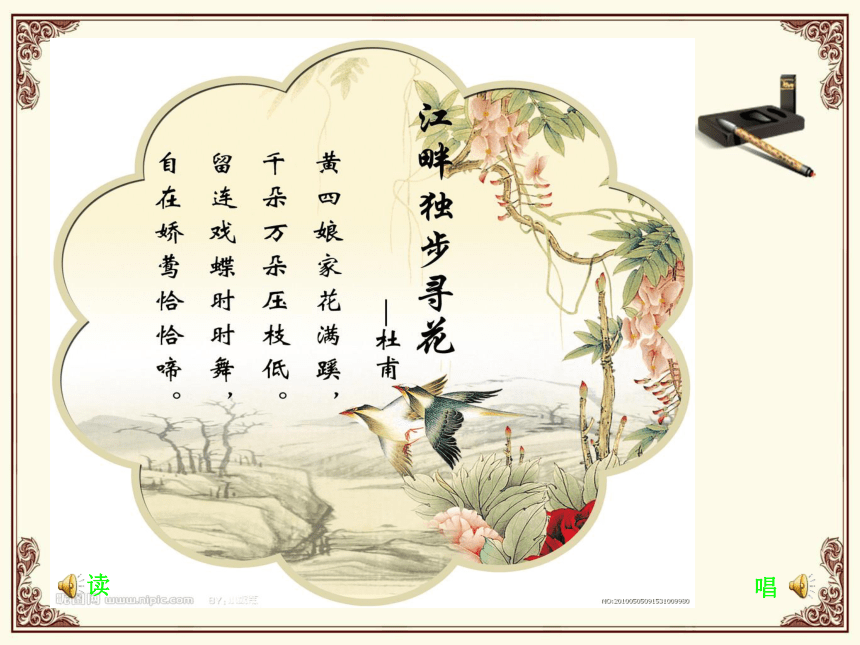 江畔独步寻花
—杜甫
黄四娘家花满蹊，
千朵万朵压枝低。
留连戏蝶时时舞，
自在娇莺恰恰啼。
读
唱
www.nipic.com
NO:20100505091531009980